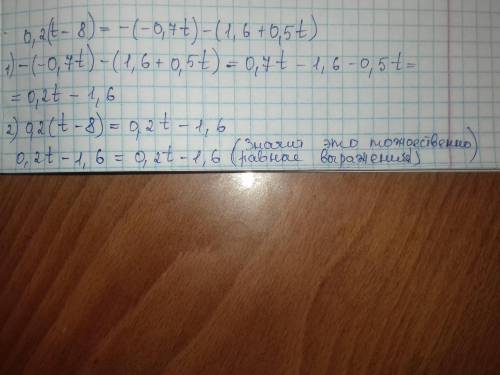 0,2(t-8) = -(-0,7t)-(1,6+0,5t)
1) -(-0,7t)-(1,6+0,5t) = 0,7t-1,6-0,5t=
= 0,2t-1,6
2) 0,2(t-8) = 0,2t-1,6
0,2t-1,6 = 0,2t-1,6 (Значит это тожественно
равные выражения)